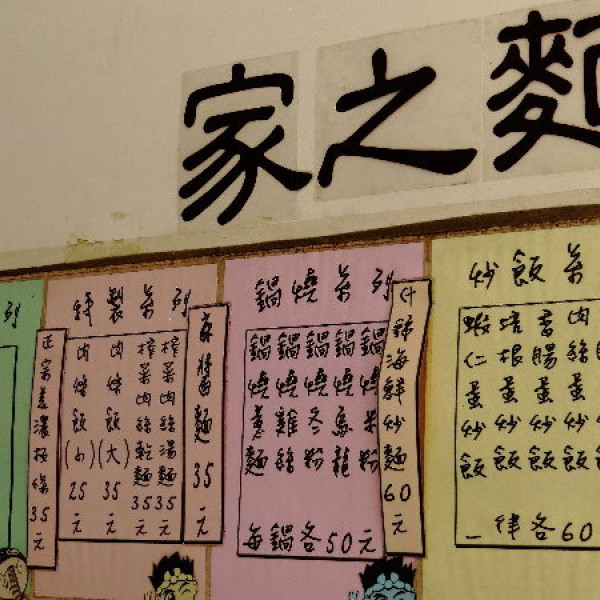 家之麵
列
正宗美濃粄條35元
特製系列
肉燥飯(小)25元
肉燥飯(大)35元
榨菜肉絲乾麵35元
榨菜肉絲湯麵35元
麻醬麵35元
鍋燒系列
鍋燒意麵
鍋燒雞絲
鍋燒冬粉
鍋燒烏龍
鍋燒米粉
每鍋各50元
什錦海鮮炒麵60元
炒飯系
蝦仁蛋炒飯
培根蛋炒飯
香腸蛋炒飯
肉絲蛋炒飯
一律各60